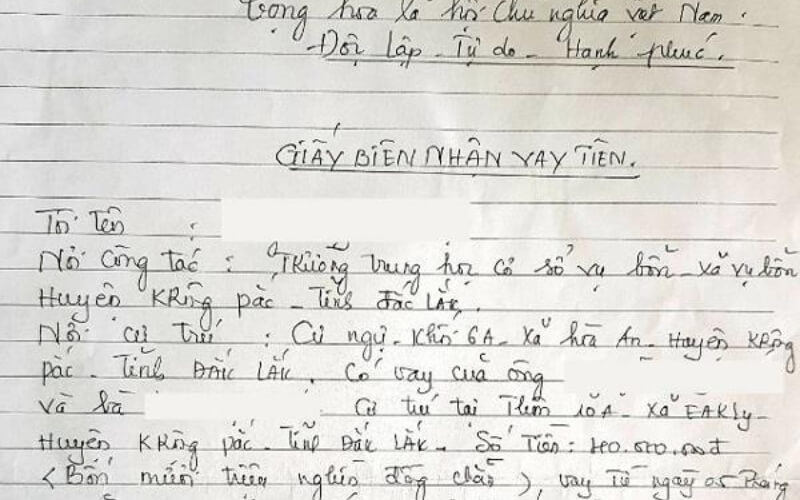 Cộng hòa xã hội Chủ nghĩa Việt Nam.
Độc lập - Tự do - Hạnh phúc.
GIẤY BIÊN NHẬN VAY TIỀN.
Tôi tên :
Nơi công tác : Trường trung học cơ sở vụ bổn - xã vụ bổn
Huyện KRông pắc - Tỉnh đắc Lắk.
Nơi cư trú : Cư ngụ - Khối 6A - Xã hòa An - Huyện KRông
pắc - Tỉnh ĐẮK LẮK. Có vay của ông
và bà Cư trú tại Thôn 10A - Xã EAKly -
Huyện KRông pắc - Tỉnh Đắk LẮK - Số Tiền: 40.000.000đ
(Bốn mươi triệu nghìn đồng chẵn), vay Từ ngày 05 tháng